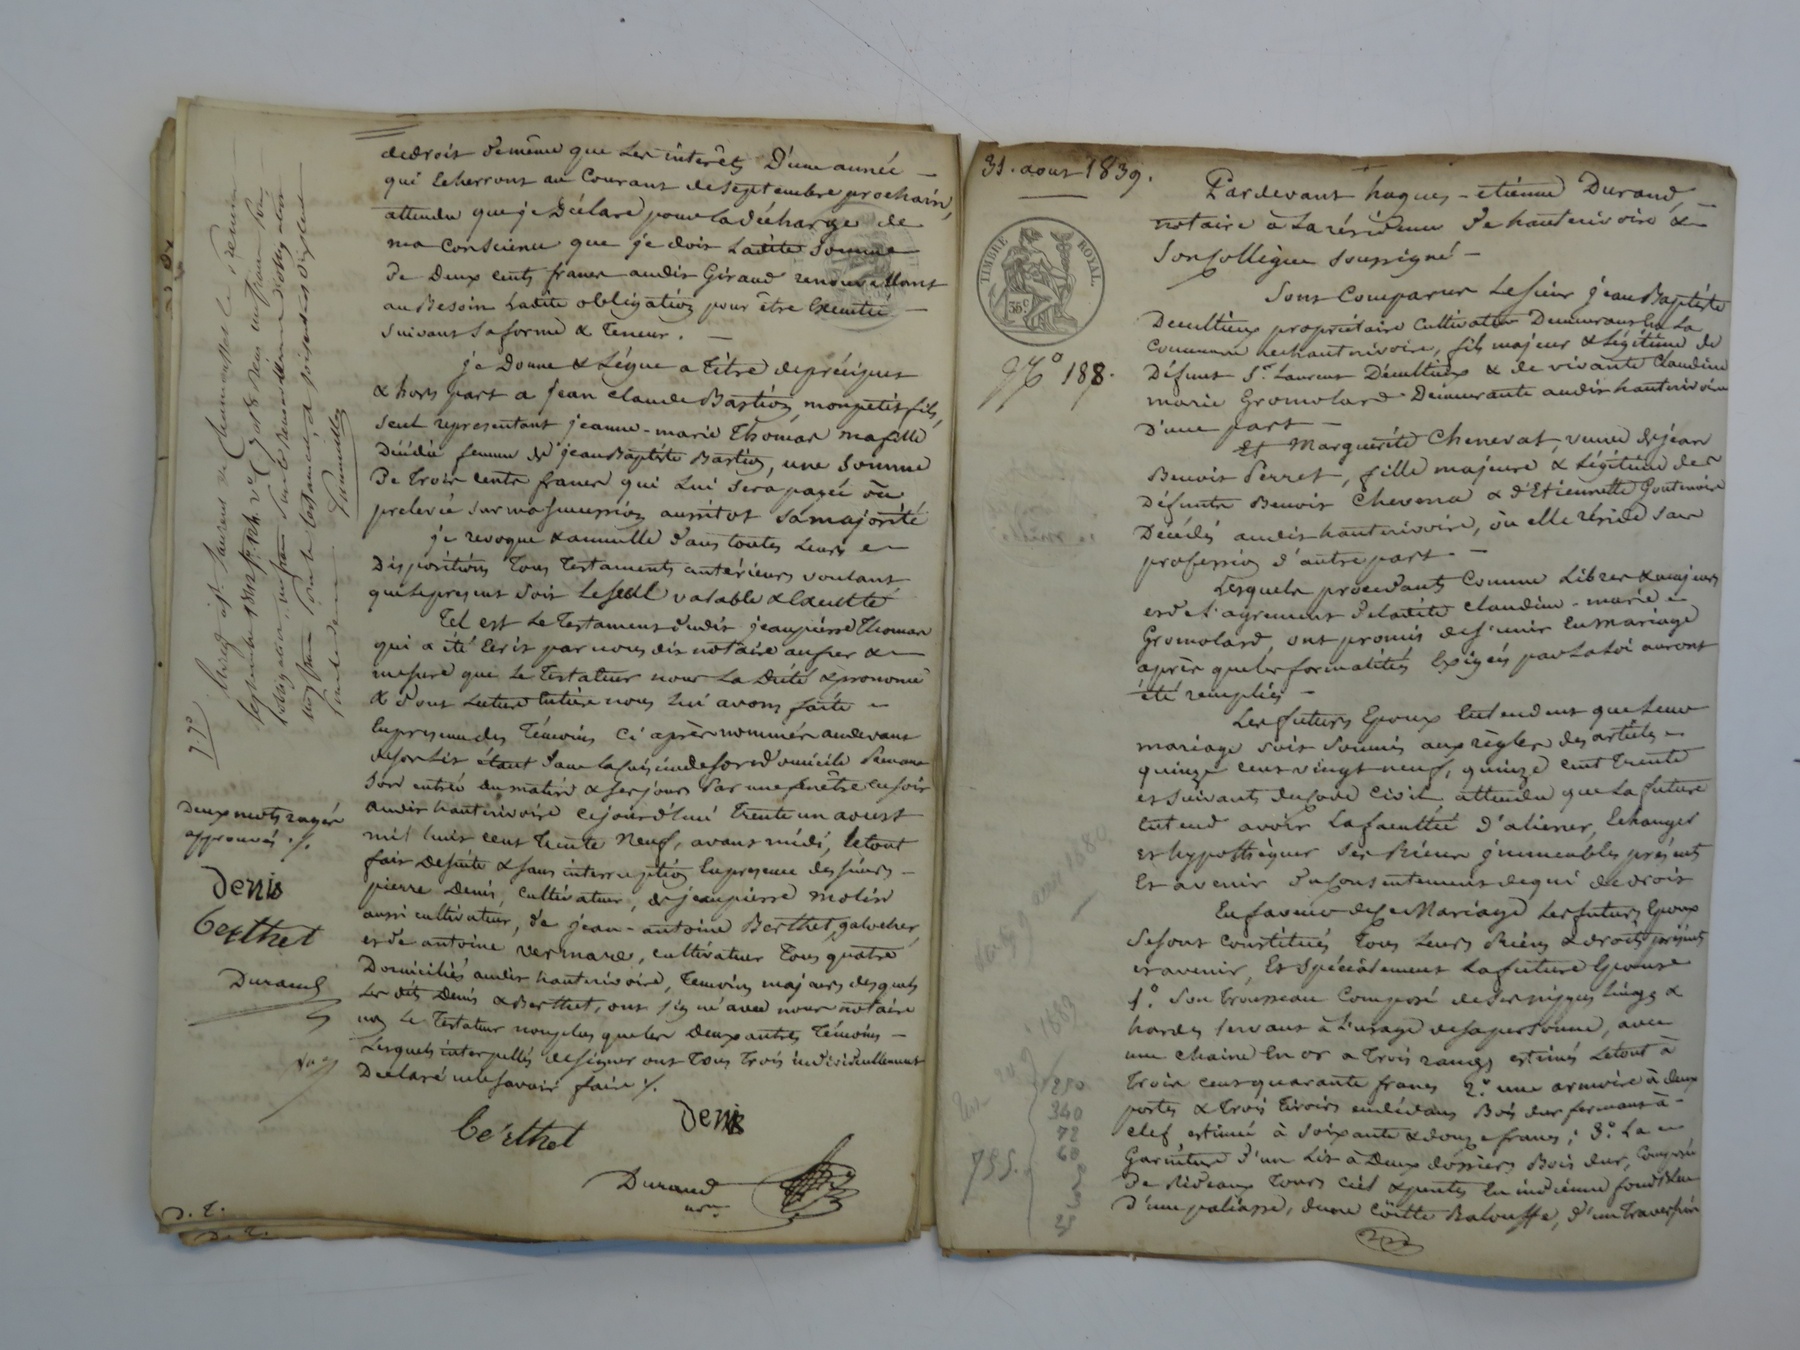 dedroit de même que les intérêts d'une année
qui écherront au courant de septembre prochain,
attendu que je déclare pour la décharge de
ma conscience que je dois ladite somme
de deux cents francs audit Giraud renouvellant
au besoin ladite obligation pour être exécutée
suivant sa forme & teneur.
je donne & lègue a titre de préciput
& hors part a jean claude Bastion, mon petit fils,
seul representant jeanne-marie Thomas ma fille
décédée femme de jean Baptiste Bastion, une somme
de trois cents francs qui lui sera payée ou
prelevée sur ma succession aussitot sa majorité
je revoque & annulle dans toutes leurs
dispositions tous testaments antérieurs voulant
que le present soit le seul valable & exécuté
Tel est le testament dudit jean pierre Thomas
qui a été écrit par nous dit notaire au fur &
mesure que le testateur nous l'a dicté & prononcé
& dont lecture entière nous lui avons faite
en presence des témoins ci après nommés au devant
de son lit étant dans la cuisine de son domicile prenant
son entrée du matin & ses jours par une fenêtre en soir
audit hauterivoire cejourd'hui trente un aoust
mil huit cent trente neuf, avant midi, le tout
fait de suite & sans interruption en presence des sieurs
pierre denis, cultivateur, de jean pierre molin
aussi cultivateur, de jean-antoine Berthet, galocher
et de antoine vernare, cultivateur tous quatre
domiciliés audit hauterivoire, témoins majeurs desquels
les dits denis & Berthet, ont signé avec nous notaire
non le testateur non plus que les deux autres témoins
lesquels interpellés de signer ont tous trois individuellement
déclaré ne le savoir faire /.
Berthet
Denis
Durand
not.re
deux mots rayés
approuvés /.
Denis
Berthet
Durand
D. T.
D. T.
31. aout 1839.
TIMBRE ROYAL
35 c
N.o 188.
Pardevant hugues-etienne Durand,
notaire à la résidence de hauterivoire &
son collègue soussigné
Sont comparus le sieur jean Baptiste
Decultieux propriétaire cultivateur demeurant en la
commune de hauterivoire, fils majeur & légitime de
défunt S.r Laurent Décultieux & de vivante Claudine
marie Gromolard demeurante audit hauterivoire
d'une part
Et Marguerite Chenevat, veuve de jean
Benoit Perret, fille majeure & légitime de
défunts Benoit Chevena & d'Etiennette
décédés audit hauterivoire, où elle réside sans
profession d'autre part
Lesquels procédants comme libres & majeurs
et de l'agrement de ladite claudine-marie
Gromolard, ont promis de s'unir en mariage
après que les formalités exigées par la loi auront
été remplies
Les futurs époux entendent que leur
mariage soit soumis aux règles des articles
quinze cent vingt neuf, quinze cent trente
et suivants du code civil attendu que la future
entend avoir la faculté d'aliener, échanger
et hypothèquer ses biens immeubles présents
et avenir du consentement de qui de droit
En faveur de ce Mariage les futurs époux
se sont constitués tous leurs biens & droits présents
et avenir, et spécialement la future épouse
1.o son trousseau composé de ses nippes linges &
hardes servant à l'usage de sa personne, avec
une chaine en or a trois rangs estimés le tout à
trois cent quarante francs 2.o une armoire à deux
portes & trois tiroirs bois dur fermant à
clef estimée à soixante & douze francs; 3.o la
garniture d'un lit à deux dossiers bois dur, composée
de rideaux tours ciel & pentes en indienne fond bleu
d'une paliasse, d'une coëtte Balouffe, d'un traversin
250
340
72
60
5
3
25
755.